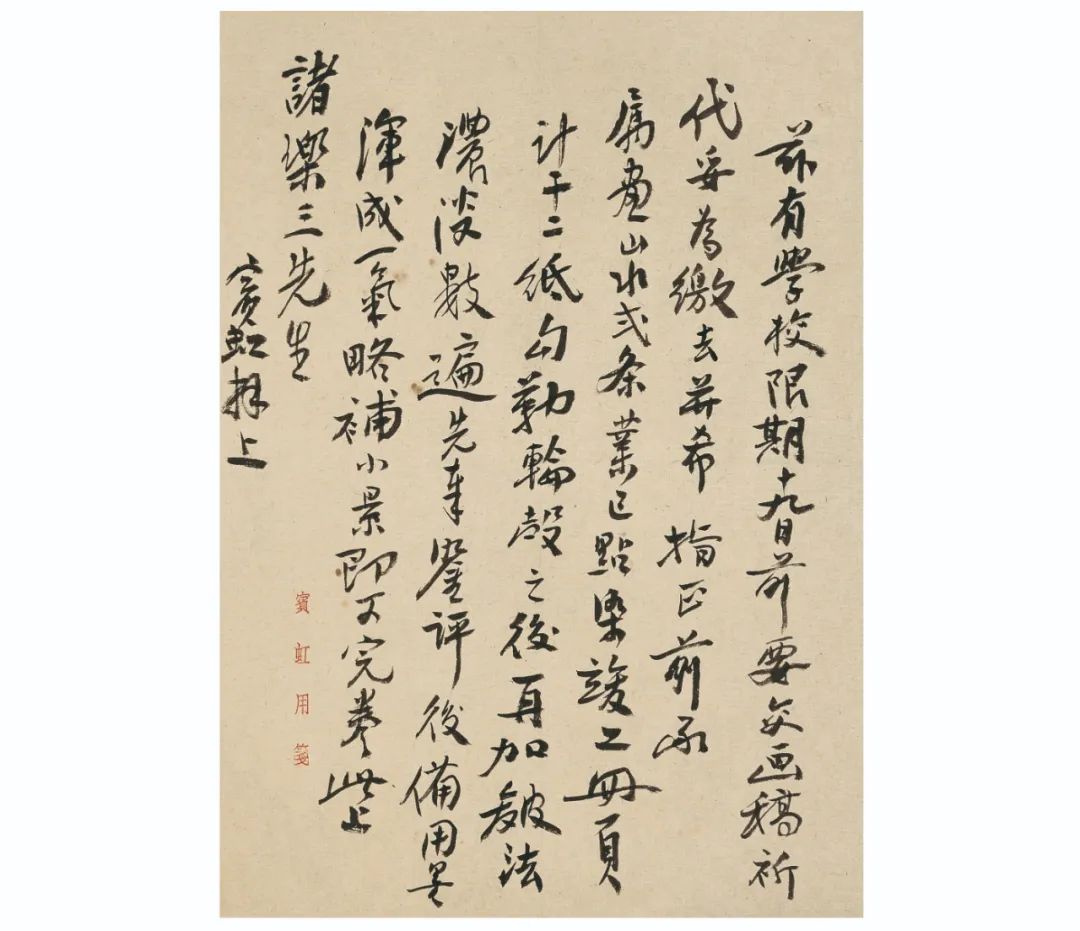 茲有學校限期十九日前要交画稿祈
代妥為繳去並希 指正前承
属畫山水弍条業已點染竣工冊頁
計十二紙勾勒輪殻之後再加皴法
濃淡數遍先奉鑒評後備用墨
渾成一氣略補小景即可完卷此上
諸樂三先生
賓虹拜上
賓虹用箋